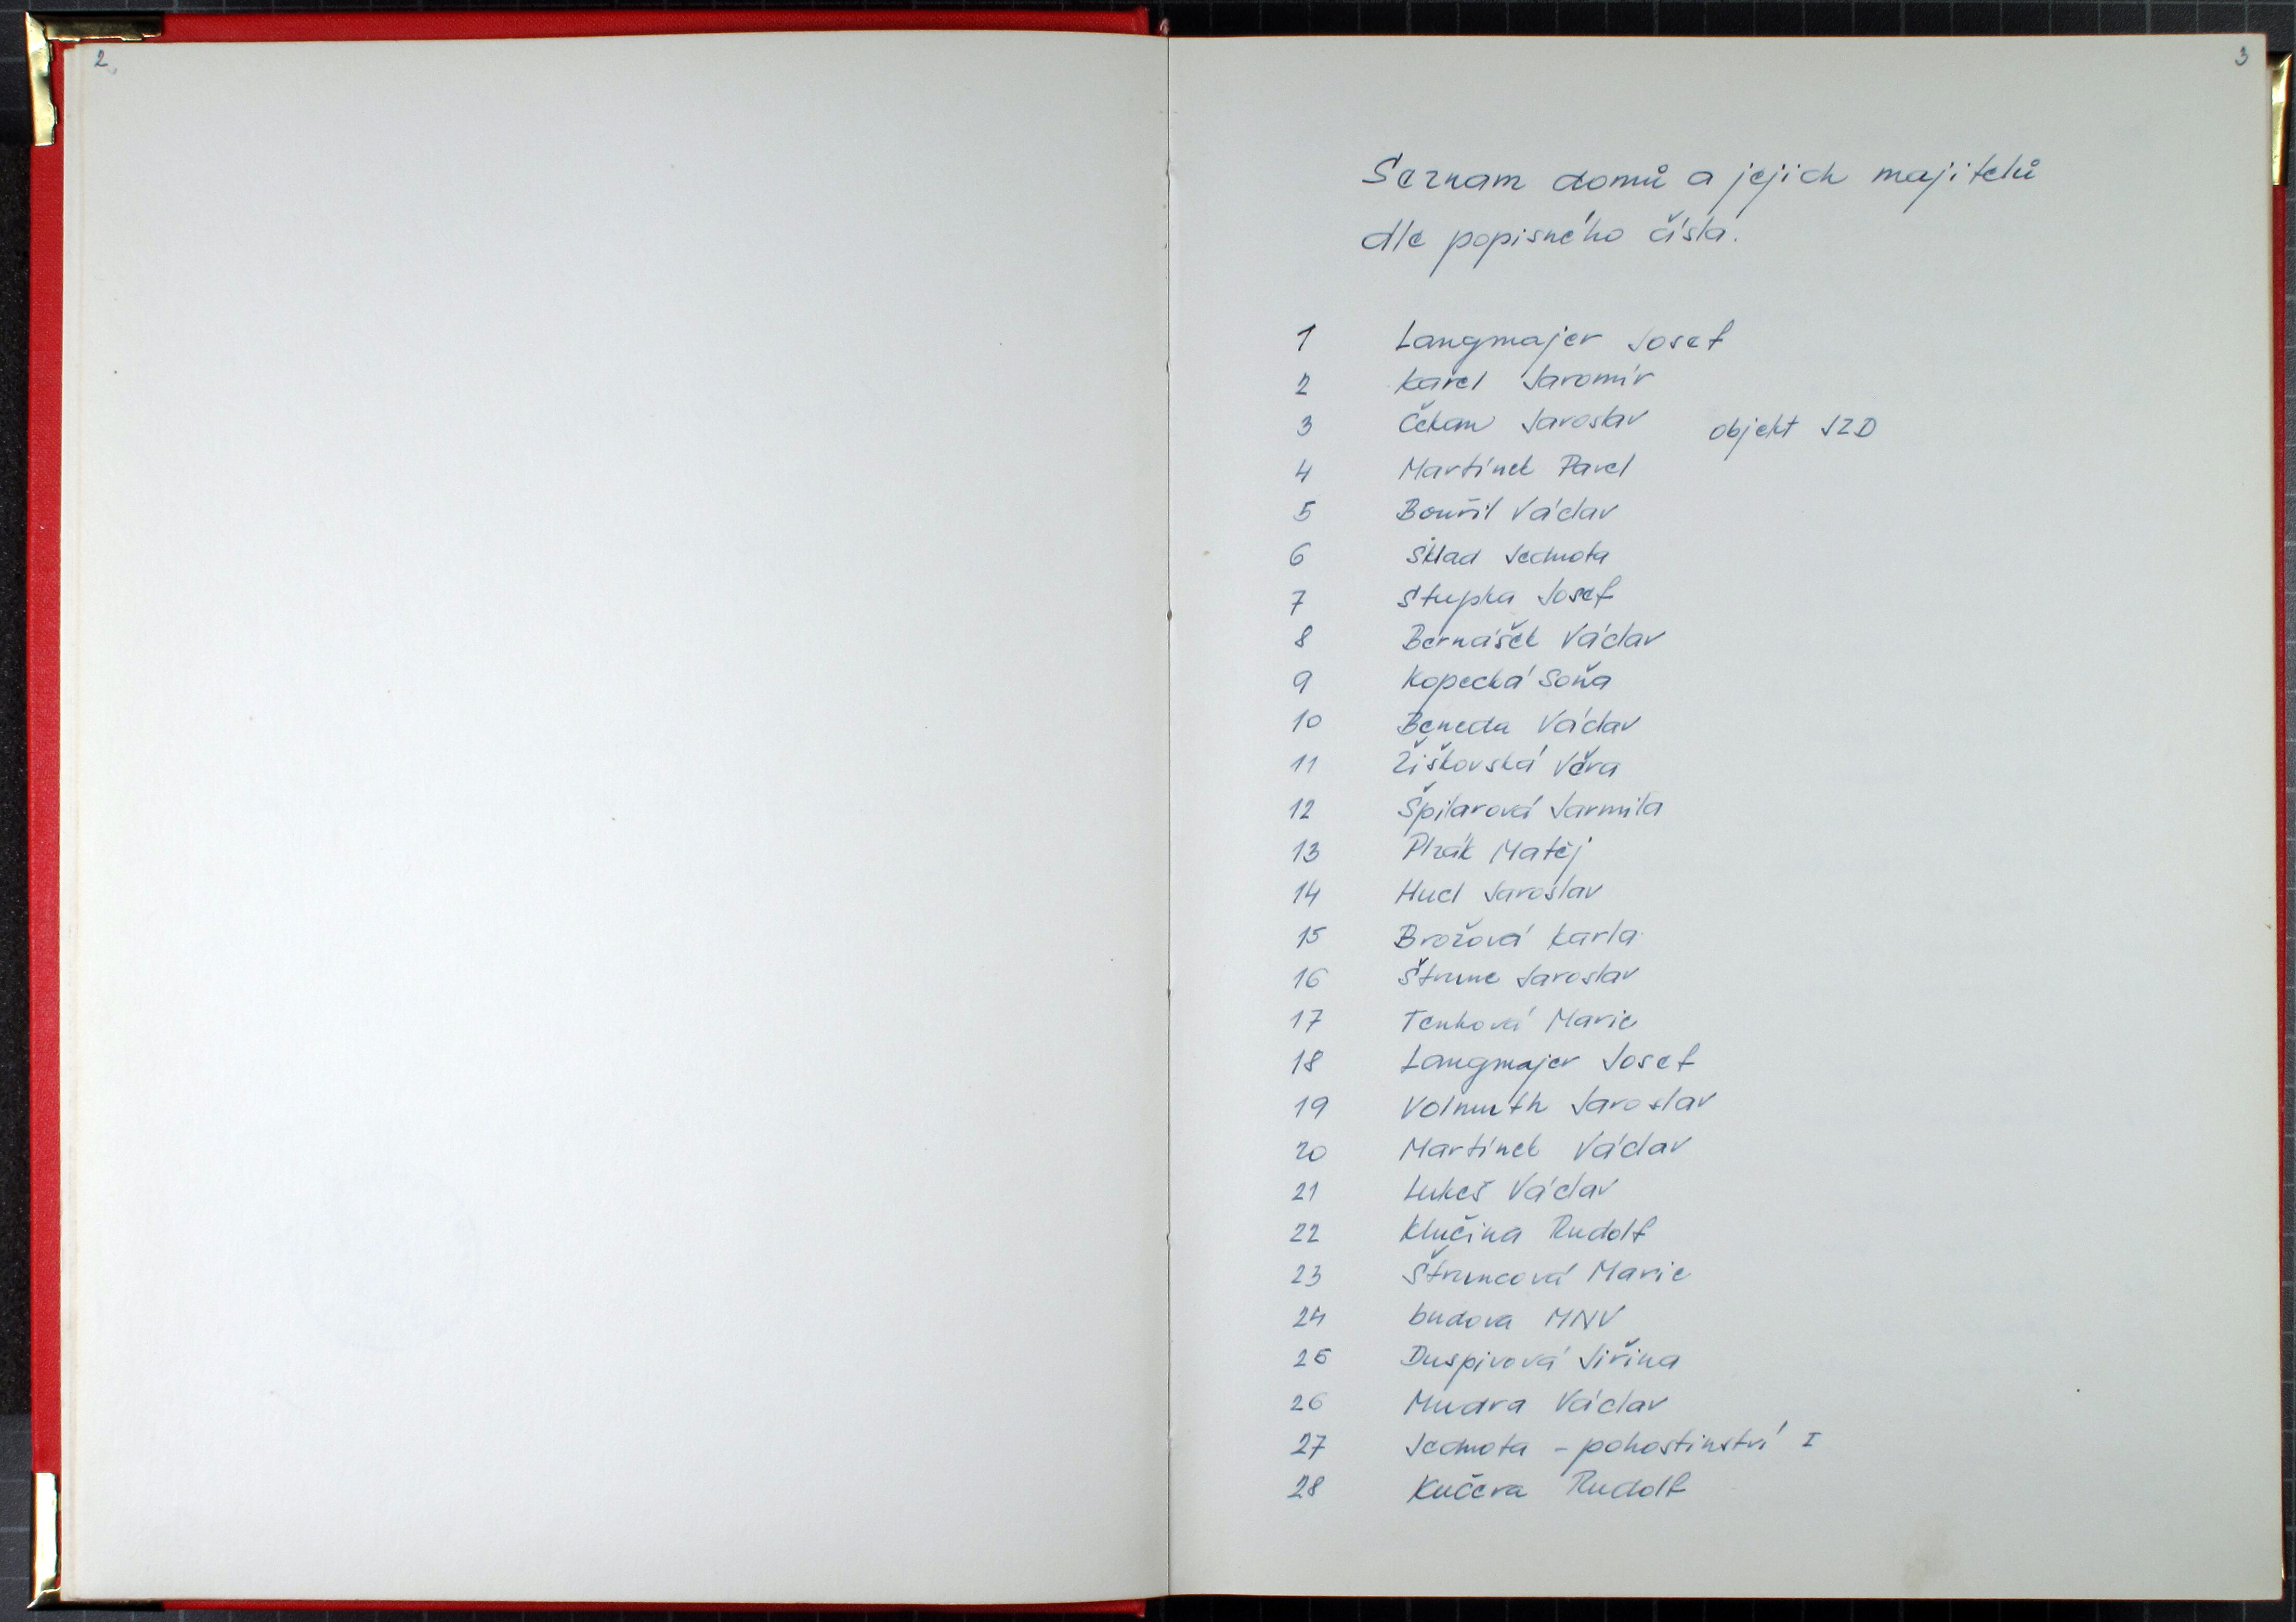 2
3
Seznam domů a jejich majitelů
dle popisného čísla.
1 Langmajer Josef
2 Karel Jaromír
3 Čekan Jaroslav objekt JZD
4 Martínek Pavel
5 Bouřil Václav
6 Sklad Jednota
7 Stupka Josef
8 Bernášek Václav
9 Kopecká Soňa
10 Beneda Václav
11 Žiškovská Věra
12 Špilarová Jarmila
13 Plzák Matěj
14 Hucl Jaroslav
15 Brožová Karla
16 Štrunc Jaroslav
17 Tenková Marie
18 Langmajer Josef
19 Volmuth Jaroslav
20 Martínek Václav
21 Lukeš Václav
22 Klučina Rudolf
23 Štruncová Marie
24 budova MNV
25 Duspivová Jiřina
26 Mudra Václav
27 Jednota - pohostinství I
28 Kučera Rudolf